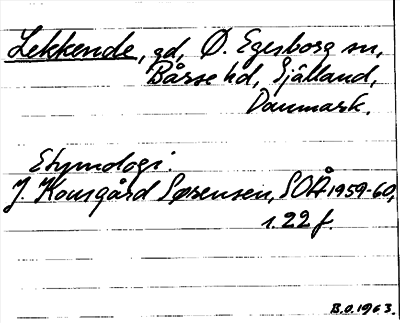 Lekkende, gd, Ø. Egesborg sn,
Bårse hd, Själland,
Danmark.
Etymologi.
J. Kousgård Sørensen, SOÅ 1959-60,
s. 22 f.
B.O. 1963.